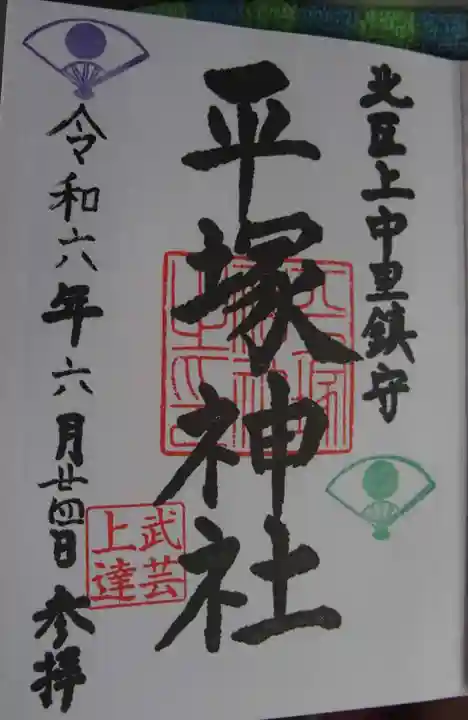 北区上中里鎮守
平塚神社
武芸
上達
令和六年六月廿四日 参拝